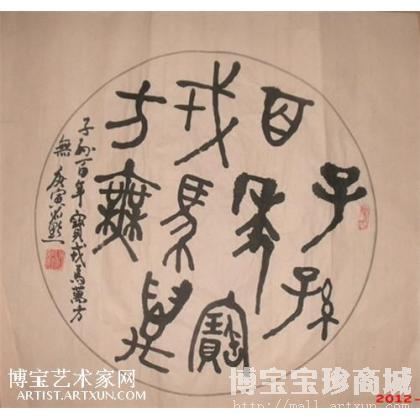 子孫
百年寶
戎馬萬
方無
子孙百年寶戎馬萬方
無 庚寅
博宝艺术家网
ARTIST.ARTXUN.COM
博宝宝珍商城
http://mall.artxun.com
2012